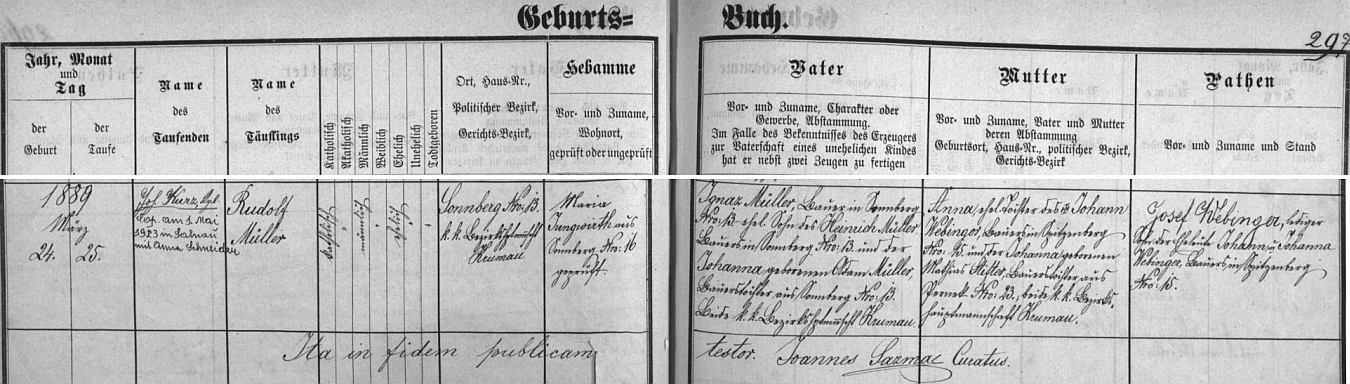 Geburts= Buch.
297
Jahr, Monat
und
Tag
der
Geburt
der
Taufe
Name
des
Taufenden
Name
des
Täuflings
Katholisch
Akatholisch
Männlich
Weiblich
Ehelich
Unehelich
Todtgeboren
Ort, Haus-Nr.,
Politischer Bezirk,
Gerichts-Bezirk,
Hebamme
Vor- und Zuname,
Wohnort,
geprüft oder ungeprüft
Vater
Vor- und Zuname, Charakter oder
Gewerbe, Abstammung.
Im Falle des Bekenntnisses des Erzeugers
zur Vaterschaft eines unehelichen Kindes
hat er nebst zwei Zeugen zu fertigen
Mutter
Vor- und Zuname, Vater und Mutter
deren Abstammung
Geburtsort, Haus-Nr., politischer Bezirk,
Gerichts-Bezirk
Pathen
Vor- und Zuname und Stand
1889
März
24. 25.
Jos. Kurz,
Cop. am 1. Mai
1923 in Salnau
mit Anna Schneider
Rudolf
Müller
katholisch
männlich
ehelich
Sonnberg Nro: 13.
k. k. Bezirkshptmschft
Krumau
Maria
Jungwirth aus
Sonnberg Nro: 16
geprüft.
Ignaz Müller, Bauer in Sonnberg
Nro: 13. ehel. Sohn des Heinrich Müller
Bauers in Sonnberg Nro: 13 und der
Johanna geborenen Adam Müller,
Bauerstochter aus Sonnberg Nro: 13.
Beide k. k. Bezirkshptmschft Krumau.
Anna, ehel. Tochter des Johann
Webinger, Bauers in Spitzenberg
Nro: 15. und der Johanna geborenen
Mathias Stifter, Bauerstochter aus
Pernek Nro: 23., beide k. k. Bezirks-
hauptmannschaft Krumau.
Josef Webinger, lediger
Sohn der Eheleute Johann u. Johanna
Webinger, Bauers in Spitzenberg
Nro: 15.
Ita in fidem publicam testor. Joannes Sazmac Curatus.